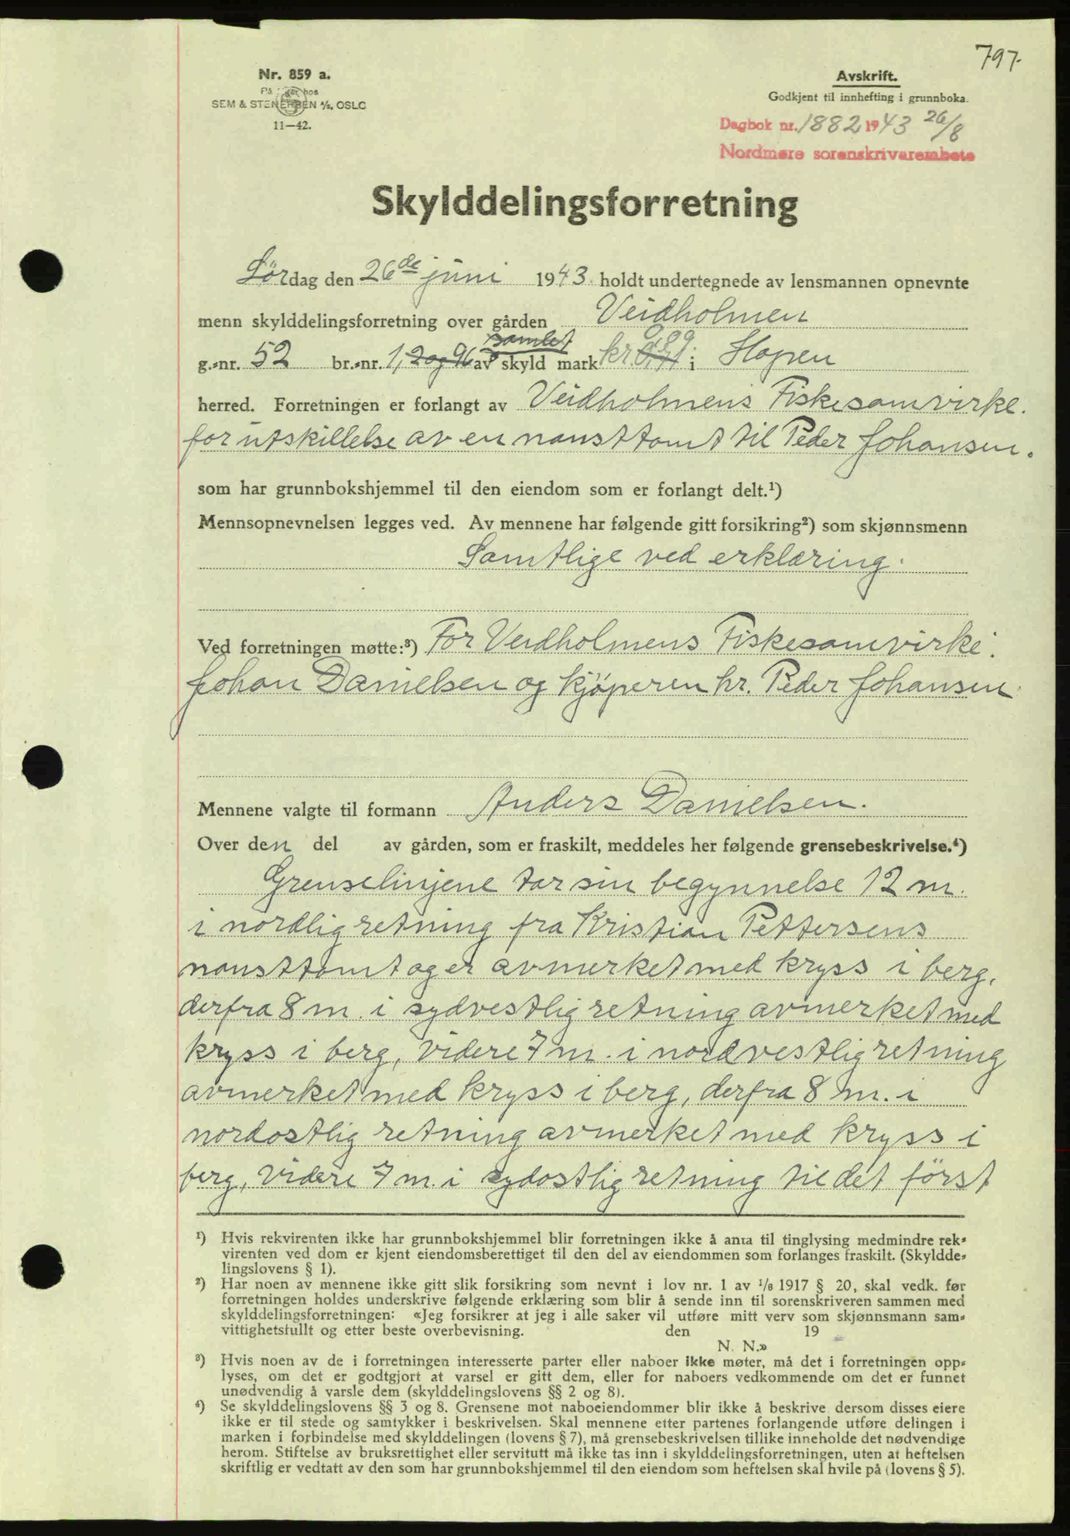 797.
Nr. 859 a.
På lager hos
SEM & STENERSEN A/S, OSLO
11—42.
Avskrift.
Godkjent til innhefting i grunnboka.
Dagbok nr. 1882 1943 26/8
Nordmøre sorenskrivarembete
Skylddelingsforretning
Lördag den 26de juni 1943. holdt undertegnede av lensmannen opnevnte
menn skylddelingsforretning over gården Veidholmen
samlet
g.-nr. 52 br.-nr. 1, 2 og 96 av skyld mark kr. i Hopen
herred. Forretningen er forlangt av Veidholmens Fiskesamvirke.
for utskillelse av en nausttomt til Peder Johansen.
som har grunnbokshjemmel til den eiendom som er forlangt delt.¹)
Mennsopnevnelsen legges ved. Av mennene har følgende gitt forsikring²) som skjønnsmenn
Samtlige ved erklæring.
Ved forretningen møtte:³) For Veidholmens Fiskesamvirke:
Johan Danielsen og kjöperen hr. Peder Johansen.
Mennene valgte til formann Anders Danielsen.
Over den del av gården, som er fraskilt, meddeles her følgende grensebeskrivelse.⁴)
Grenselinjene tar sin begynnelse 12 m.
i nordlig retning fra Kristian Pettersens
nausttomt og er avmerket med kryss i berg,
derfra 8 m. i sydvestlig retning avmerket med
kryss i berg, videre 7 m. i nordvestlig retning
avmerket med kryss i berg, derfra 8 m. i
nordostlig retning avmerket med kryss i
berg, videre 7 m. i sydostlig retning til det först
¹) Hvis rekvirenten ikke har grunnbokshjemmel blir forretningen ikke å anta til tinglysing medmindre rek-
virenten ved dom er kjent eiendomsberettiget til den del av eiendommen som forlanges fraskilt. (Skyldde-
lingslovens § 1).
²) Har noen av mennene ikke gitt slik forsikring som nevnt i lov nr. 1 av 1/8 1917 § 20, skal vedk. før
forretningen holdes underskrive følgende erklæring som blir å sende inn til sorenskriveren sammen med
skylddelingsforretningen: «Jeg forsikrer at jeg i alle saker vil utføre mitt verv som skjønnsmann sam-
vittighetsfullt og etter beste overbevisning. den 19
N. N.»
³) Hvis noen av de i forretningen interesserte parter eller naboer ikke møter, må det i forretningen opp-
lyses, om det er godtgjort at varsel er gitt dem, eller for naboers vedkommende om det er funnet
unødvendig å varsle dem (skylddelingslovens §§ 2 og 8).
⁴) Se skylddelingslovens §§ 3 og 8. Grensene mot naboeiendommer blir ikke å beskrive dersom disses eiere
ikke er til stede og samtykker i beskrivelsen. Skal mennene etter partenes forlangende utføre delingen i
marken i forbindelse med skylddelingen (lovens § 7), må grensebeskrivelsen tillike inneholde det nødvendige
herom. Stiftelse av bruksrettighet eller servitutt må ikke tas inn i skylddelingsforretningen, uten at heftelsen
skriftlig er vedtatt av den som har grunnbokshjemmel til den eiendom som heftelsen skal hvile på (lovens § 5).